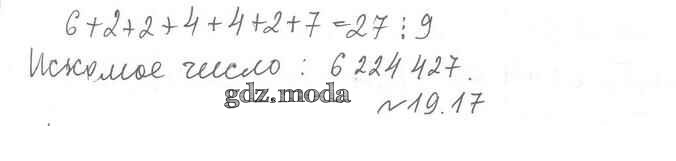 6+2+2+4+4+2+7=27⋮9
Искомое число: 6 224 427.
gdz.moda
№19.17